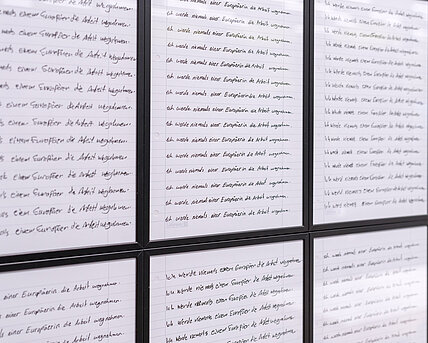 einem Europäer die Arbeit wegnehmen.
einem Europäer die Arbeit wegnehmen.
einem Europäer die Arbeit wegnehmen.
einem Europäer die Arbeit wegnehmen.
einem Europäer die Arbeit wegnehmen.
einem Europäer die Arbeit wegnehmen.
einem Europäer die Arbeit wegnehmen.
einem Europäer die Arbeit wegnehmen.
einem Europäer die Arbeit wegnehmen.
einem Europäer die Arbeit wegnehmen.
einem Europäer die Arbeit wegnehmen.
einem Europäer die Arbeit wegnehmen.
einem Europäer die Arbeit wegnehmen.
Ich werde niemals einer Europäerin die Arbeit wegnehmen.
Ich werde niemals einer Europäerin die Arbeit wegnehmen.
Ich werde niemals einer Europäerin die Arbeit wegnehmen.
Ich werde niemals einer Europäerin die Arbeit wegnehmen.
Ich werde niemals einer Europäerin die Arbeit wegnehmen.
Ich werde niemals einer Europäerin die Arbeit wegnehmen.
Ich werde niemals einer Europäerin die Arbeit wegnehmen.
Ich werde niemals einer Europäerin die Arbeit wegnehmen.
Ich werde niemals einer Europäerin die Arbeit wegnehmen.
Ich werde niemals einer Europäerin die Arbeit wegnehmen.
Ich werde niemals einer Europäerin die Arbeit wegnehmen.
Ich werde niemals einer Europäerin die Arbeit wegnehmen.
Ich werde niemals einer Europäerin die Arbeit wegnehmen.
Ich werde niemals einer Europäerin die Arbeit wegnehmen.
Ich werde niemals einem Europäer die Arbeit wegnehmen.
Ich werde niemals einem Europäer die Arbeit wegnehmen.
Ich werde niemals einem Europäer die Arbeit wegnehmen.
Ich werde niemals einem Europäer die Arbeit wegnehmen.
Ich werde niemals einem Europäer die Arbeit wegnehmen.
Ich werde niemals einem Europäer die Arbeit wegnehmen.
Ich werde niemals einem Europäer die Arbeit wegnehmen.
Ich werde niemals einem Europäer die Arbeit wegnehmen.
Ich werde niemals einem Europäer die Arbeit wegnehmen.
Ich werde niemals einem Europäer die Arbeit wegnehmen.
Ich werde niemals einem Europäer die Arbeit wegnehmen.
Ich werde niemals einem Europäer die Arbeit wegnehmen.
Ich werde niemals einem Europäer die Arbeit wegnehmen.
einer Europäerin die Arbeit wegnehmen.
einer Europäerin die Arbeit wegnehmen.
einer Europäerin die Arbeit wegnehmen.
Ich werde niemals einem Europäer die Arbeit wegnehmen.
Ich werde niemals einem Europäer die Arbeit wegnehmen.
Ich werde niemals einem Europäer die Arbeit wegnehmen.
Ich werde niemals einem Europäer die Arbeit wegnehmen.
Ich werde niemals einem Europäer die Arbeit wegnehmen.
Ich werde niemals einer Europäerin die Arbeit wegnehmen.
Ich werde niemals einer Europäerin die Arbeit wegnehmen.
Ich werde niemals einer Europäerin die Arbeit wegnehmen.
Ich werde niemals einer Europäerin die Arbeit wegnehmen.
Ich werde niemals einer Europäerin die Arbeit wegnehmen.